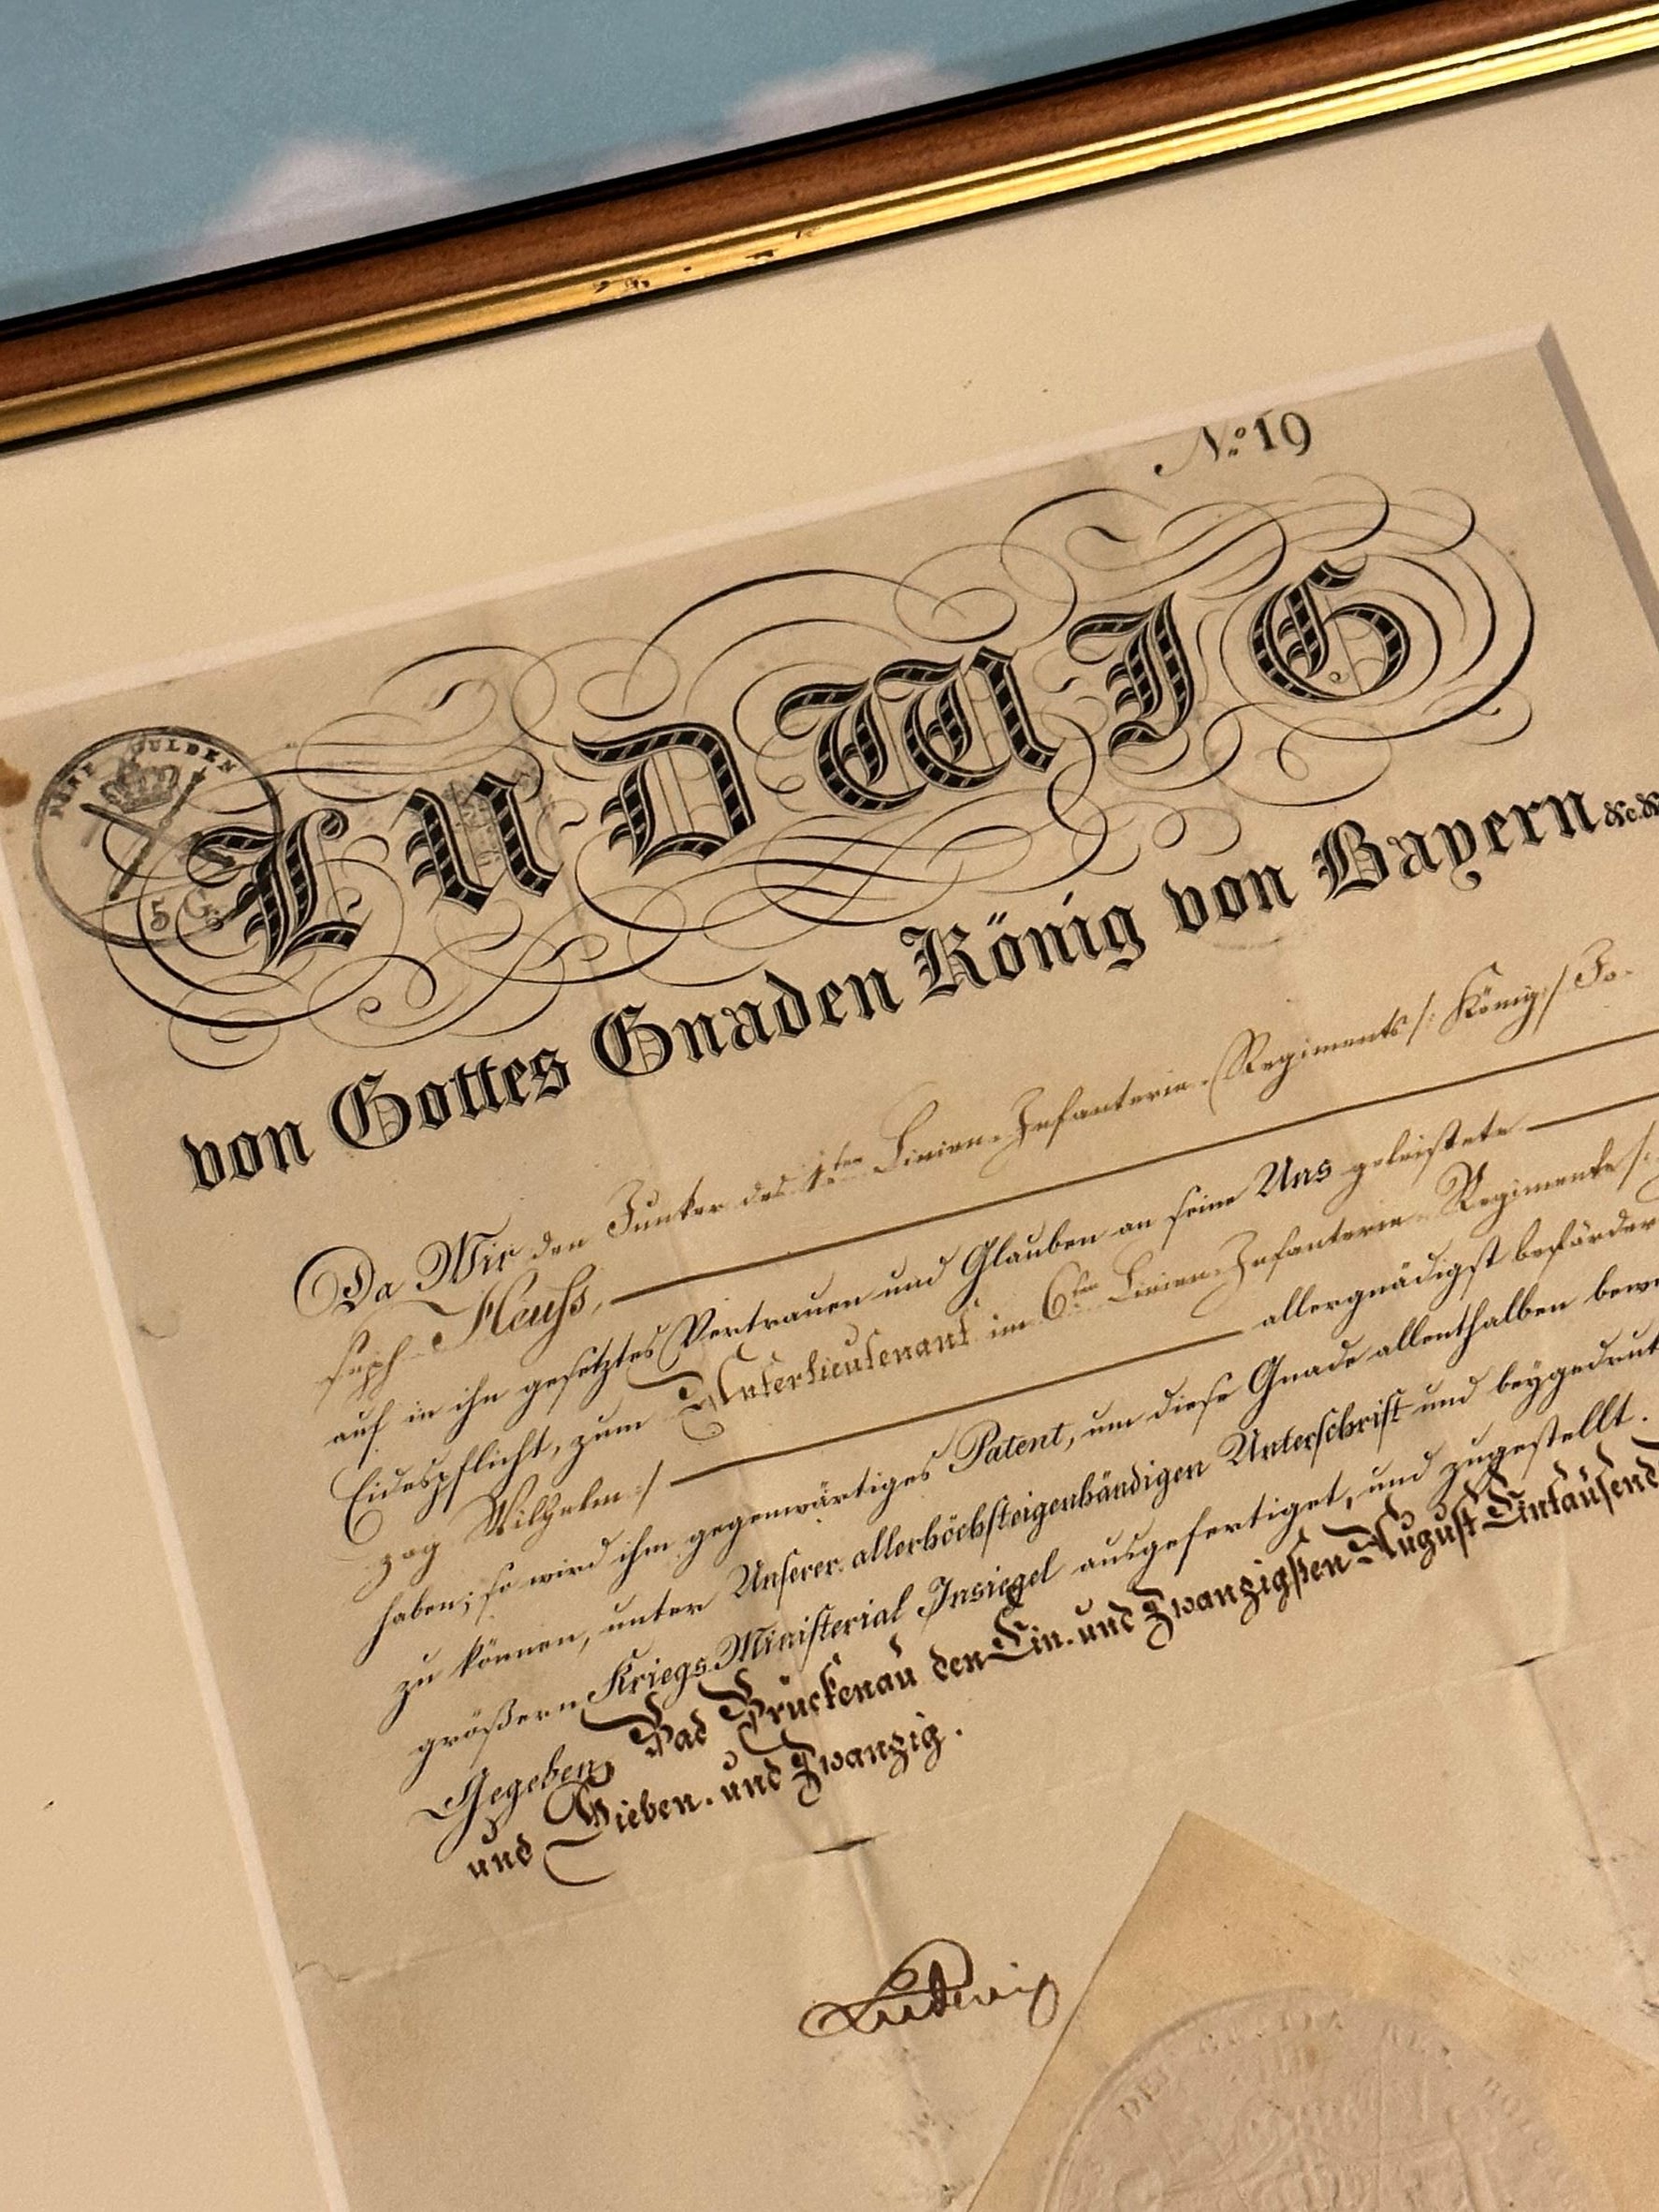 No. 19
FÜNF GULDEN
5 G
LUDWIG
von Gottes Gnaden König von Bayern &c. &
Da Wir den Junker des 1ten Linien-Infanterie-Regiments /: König :/ Jo-
seph Heuss,
auf in ihn gesetztes Vertrauen und Glauben an seine Uns geleistete
Eidespflicht, zum Unterlieutenant im 6ten Linien-Infanterie-Regimente /:
zog Wilhelm :/ allergnädigst befördert
haben; so wird ihm gegenwärtiges Patent, um diese Gnade allenthalben
zu können, unter Unserer allerhöchsteigenhändigen Unterschrift und beygedruckt
größern Kriegs-Ministerial Insiegel ausgefertiget, und zugestellt.
Gegeben, Bad Brückenau den Ein- und Zwanzigsten August Eintausend
und Sieben- und Zwanzig.
Ludwig